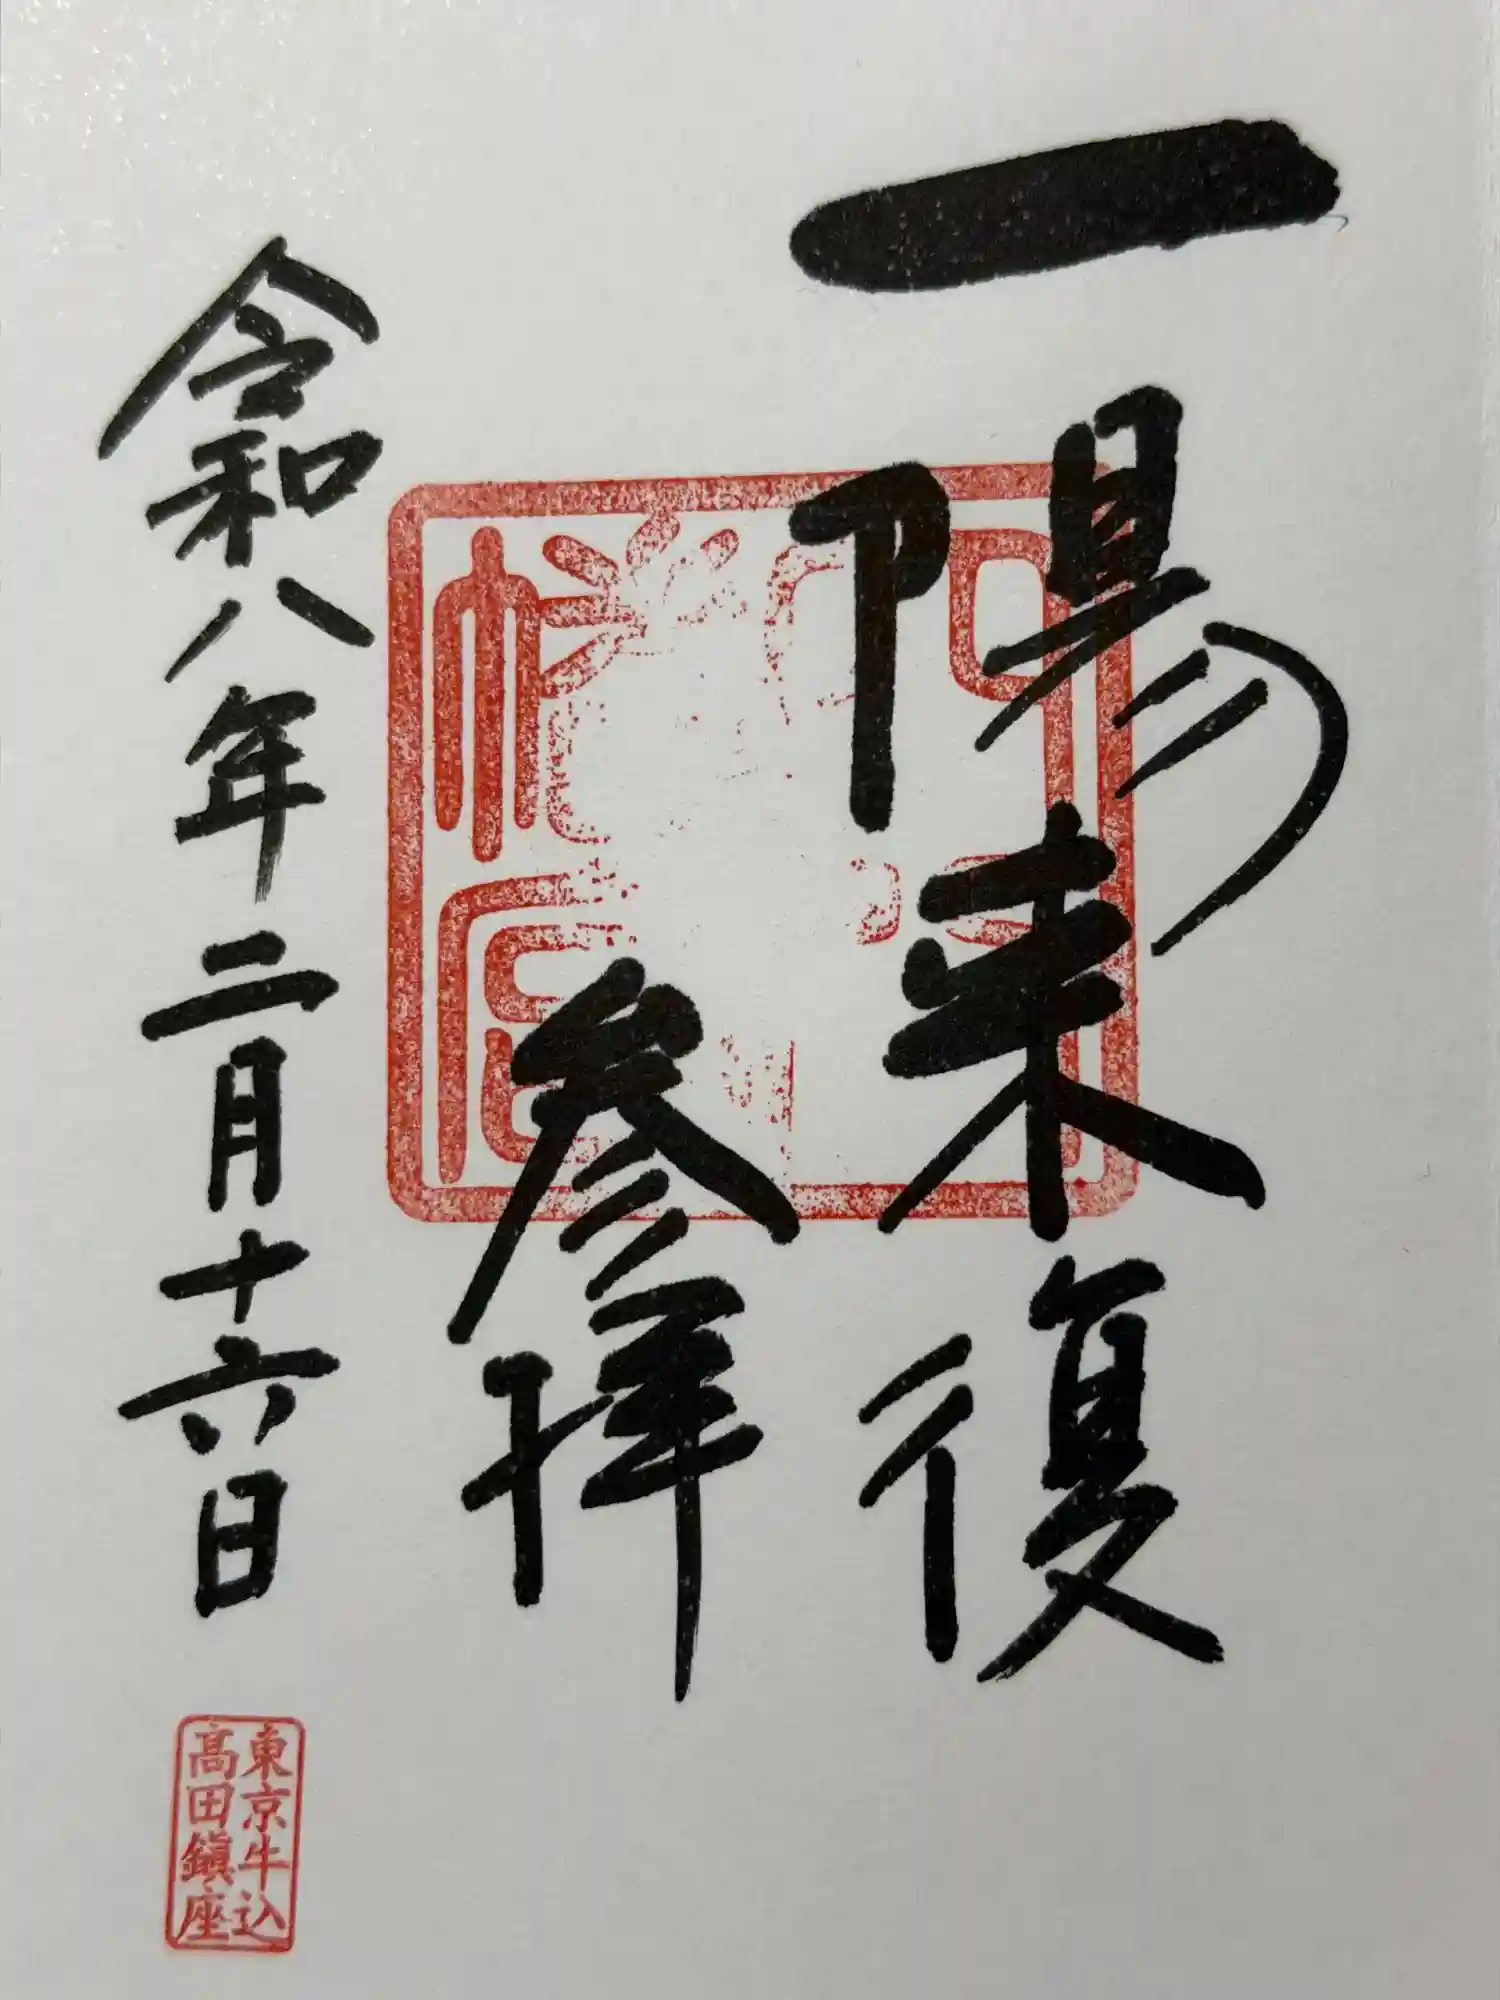 一陽来復
参拝
令和八年二月十六日
東京牛込
高田鎮座